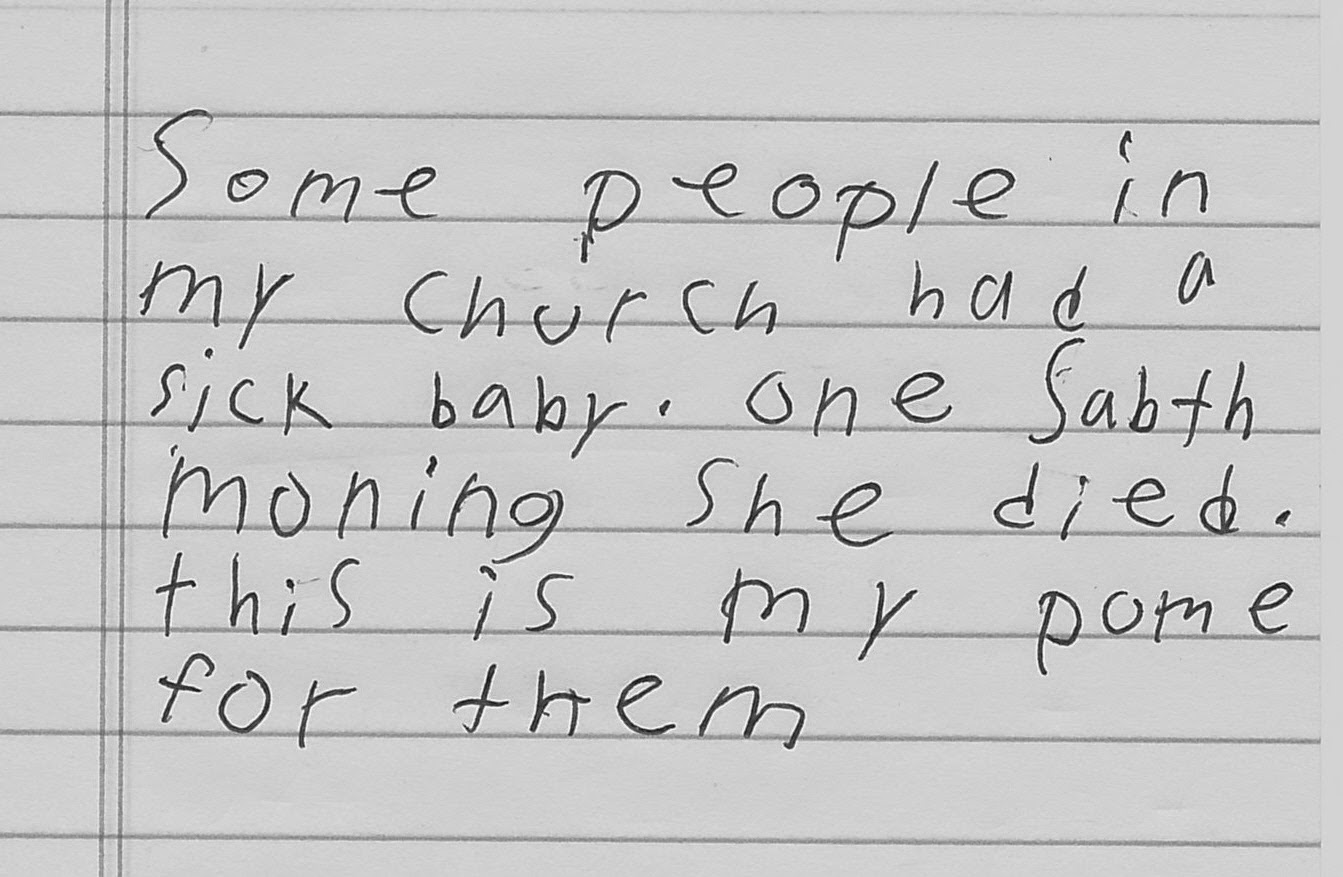 Some people in
my church had a
sick baby. one Sabth
moning she died.
this is my pome
for them